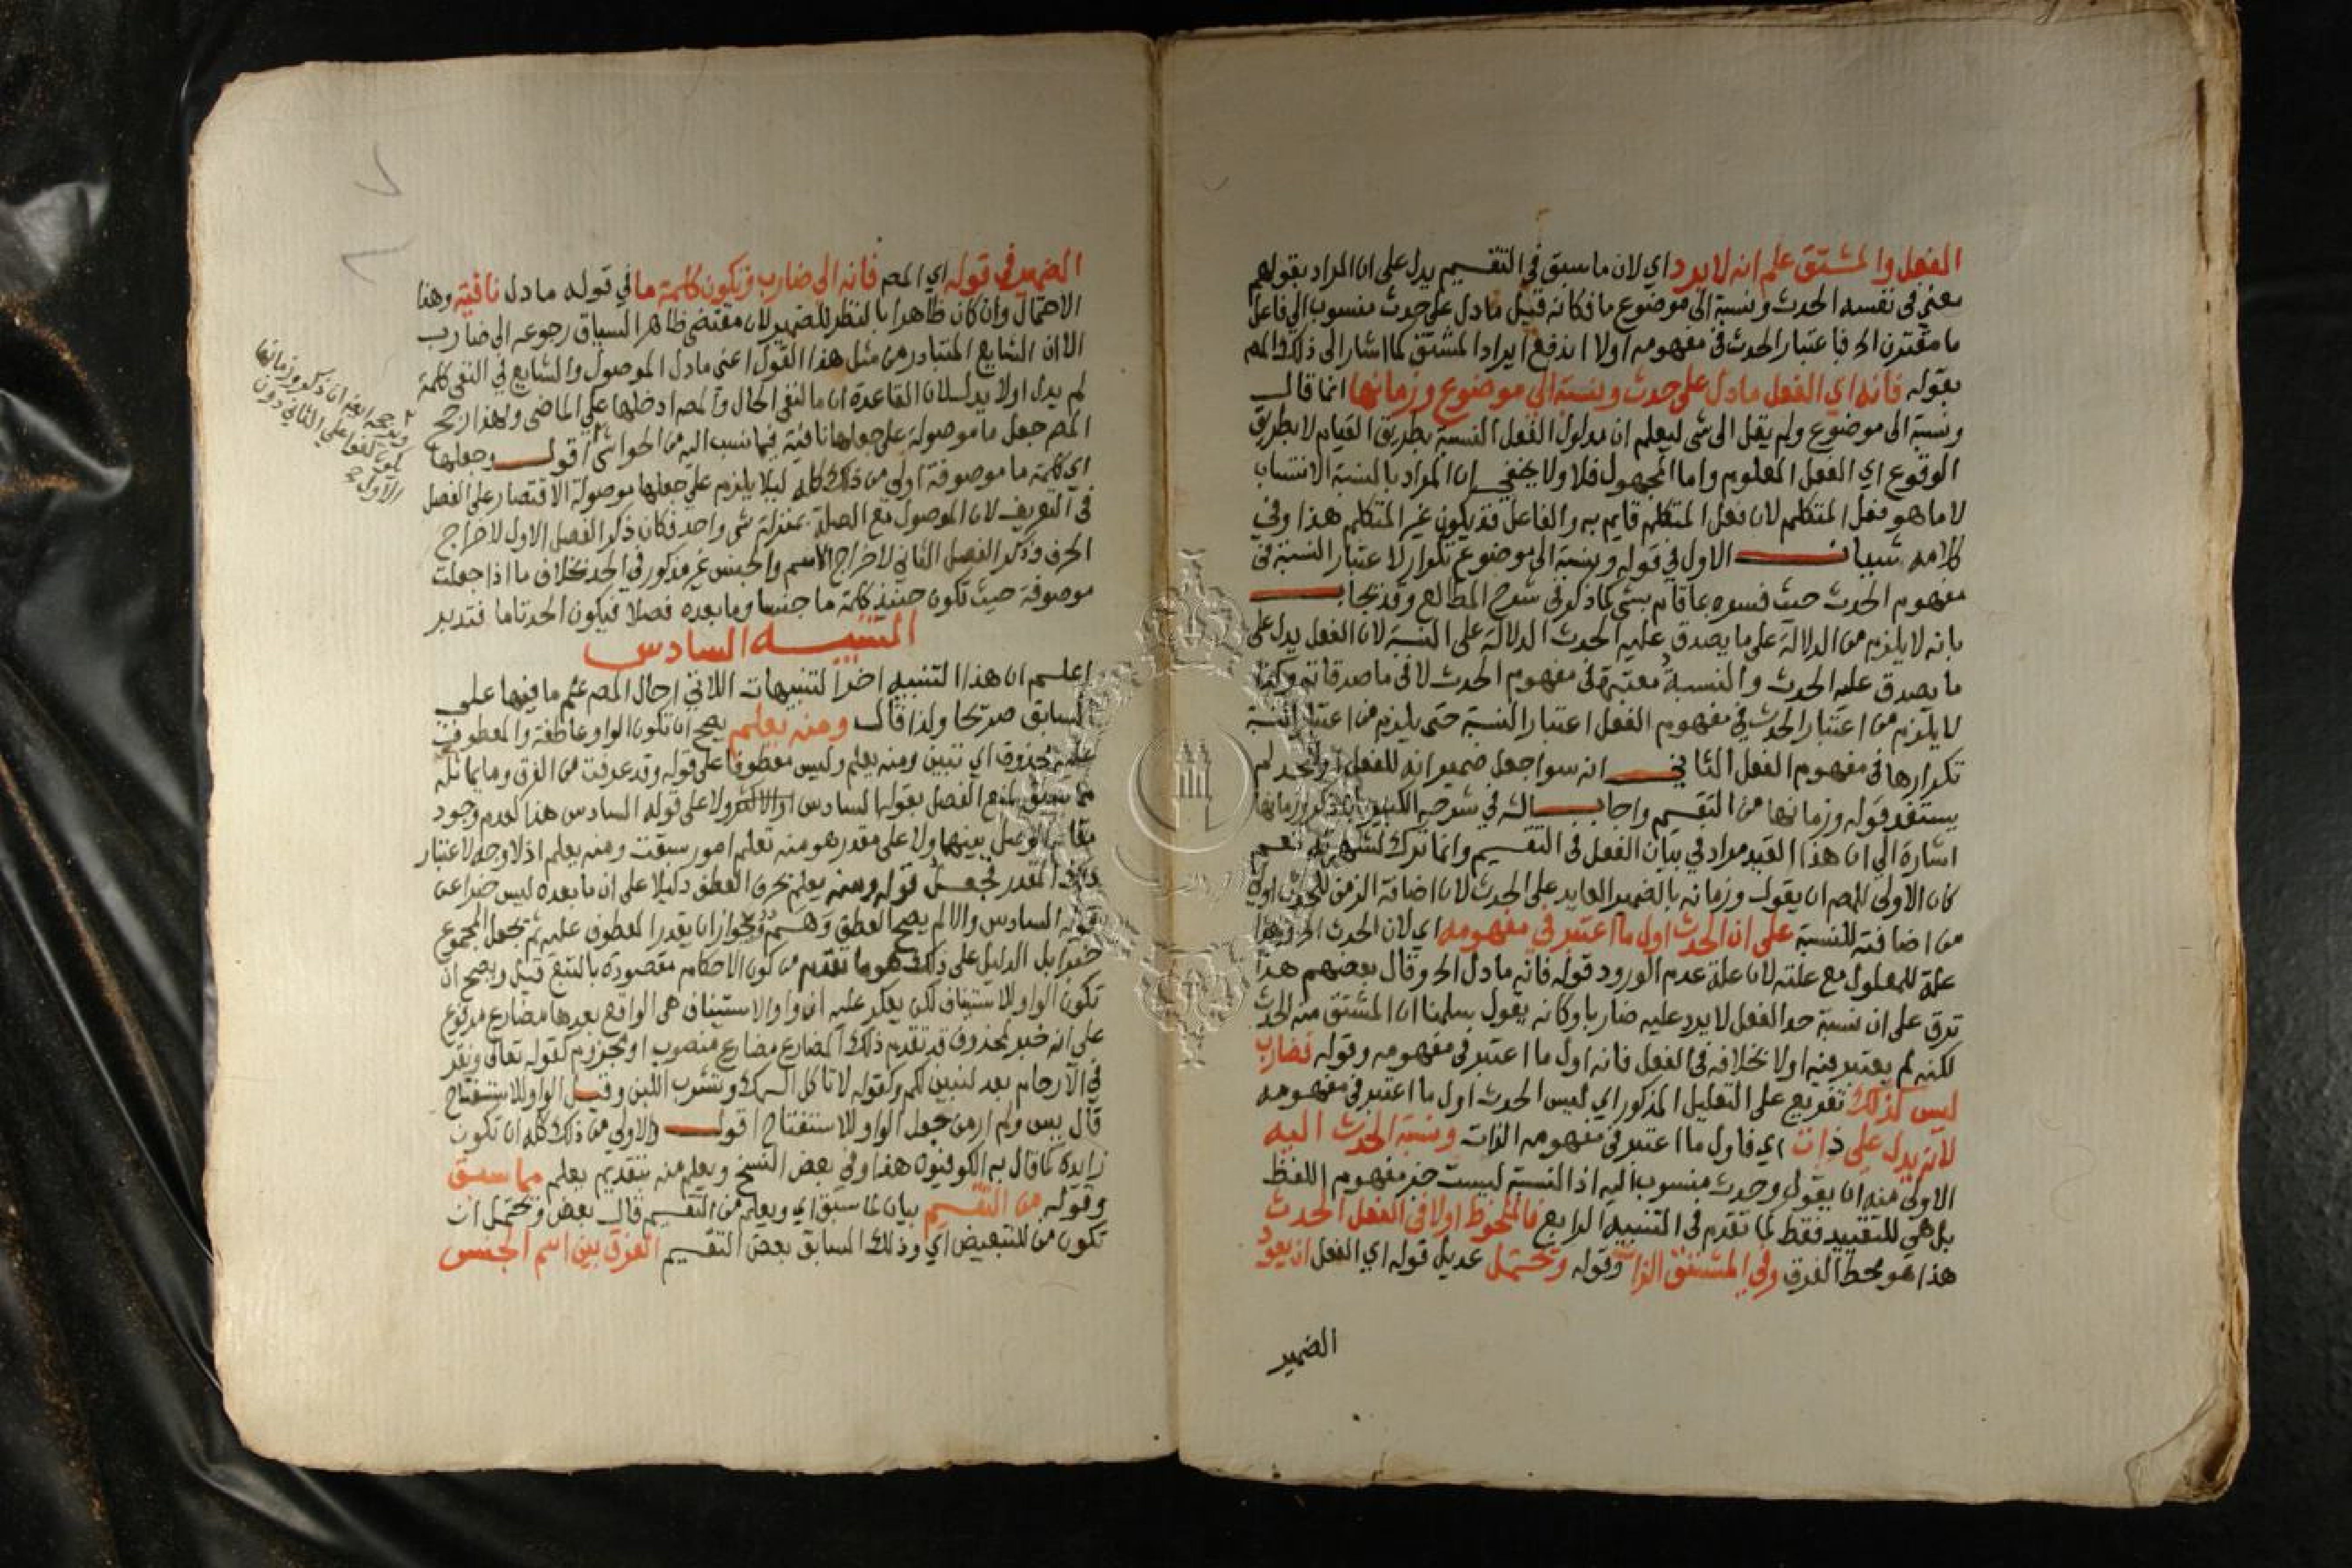 الفعل والمشتق علم انه لا يرد اي لان ما سبق في التقسيم يدل على ان المراد بقولهم
معنى في نفسه الحدث ونسبة الى موضوع ما فكانه قيل ما دل على حدث منسوب الى فاعل
ما مقترن الخ فاعتبار الحدث في مفهومه اولا اندفع ايراد المشتق كما اشار الى ذلك المص
بقوله فانه اي الفعل ما دل على حدث ونسبة الى موضوع وزمانها انما قال
ونسبة الى موضوع ولم يقل الى شي ليعلم ان مدلول الفعل النسبة بطريق القيام لا بطريق
الوقوع اي الفعل المعلوم واما المجهول فلا ولا يخفى ان المراد بالنسبة الانتساب
لا ما هو فعل المتكلم لان فعل المتكلم قايم به والفاعل قد يكون غير المتكلم هذا وفي
كلامه شيان الاول في قوله ونسبة الى موضوع تكرار لاعتبار النسبة في
مفهوم الحدث حيث فسروه بما قام بشي كما ذكر في شرح المطالع وقد يجاب
بانه لا يلزم من الدلالة على ما يصدق عليه الحدث الدلالة على النسبة لان الفعل يدل على
ما يصدق عليه الحدث والنسبة معتبرة في مفهوم الحدث لا في ما صدقاته وكذا
لا يلزم من اعتبار الحدث في مفهوم الفعل اعتبار النسبة حتى يلزم من اعتبار النسبة
تكرارها في مفهوم الفعل الثاني انه سوا جعل ضمير انه للفعل او للحد لم
يستفد قوله وزمانها من التقسيم واجاب الش في شرحه الكبير ان ذكر وزمانها
اشارة الى ان هذا القيد مراد في بيان الفعل في التقسيم وانما ترك لشهرته نعم
كان الاولى للمص ان يقول وزمانه بالضمير العايد على الحدث لان اضافة الزمن للحدث اولى
من اضافته للنسبة على ان الحدث اول ما اعتبر في مفهومه اي لان الحدث الخ وهذا
علة للمعلول مع علته لان علة عدم الورود قوله فانه ما دل الخ وقال بعضهم هذا
ترق على ان نسبة حد الفعل لا يرد عليه ضاربا وكانه يقول سلمنا ان المشتق منه الحدث
لكنه لم يعتبر فيه اولا بخلافه في الفعل فانه اول ما اعتبر في مفهومه وقوله فضارب
ليس كذلك تفريع على التعليل المذكور اي ليس الحدث اول ما اعتبر في مفهومه
لانه يدل على ذات اي فاول ما اعتبر في مفهومه الذات ونسبة الحدث اليه
الاولى منه ان يقول وحدث منسوب اليه اذ النسبة ليست جز مفهوم اللفظ
بل هي للتقييد فقط كما تقدم في التنبيه الرابع فالملحوظ اولا في الفعل الحدث
هذا هو محط الفرق وفي المشتق الذات وقوله ويحتمل عديل قوله اي الفعل ان يعود
الضمير
الضمير في قوله اي المص فانه الى ضارب وتكون كلمة ما في قوله ما دل نافية وهذا
الاحتمال وان كان ظاهرا بالنظر للضمير لان مقتضى ظاهر السياق رجوعه الى ضارب
الا ان الشايع المتبادر من مثل هذا القول اعني ما دل الموصول والشايع في النفي كلمة
لم يدل اولا يدل لان القاعدة ان ما لنفي الحال والمص ادخلها على الماضي ولهذا رجح
المص جعل ما موصولة على جعلها نافية فيما نسب اليه من الحواشي اقول وجعلها
اي كلمة ما موصوفة اولى من ذلك كله ليلا يلزم على جعلها موصولة الاقتصار على الفصل
في التعريف لان الموصول مع الصلة بمنزلة شي واحد فكان ذكر الفصل الاول لاخراج
الحرف وذكر الفصل الثاني لاخراج الاسم والجنس غير مذكور في الحد بخلاف ما اذا جعلت
موصوفة حيث تكون حينئذ كلمة ما جنسا وما بعده فصلا فيكون الحد تاما فتدبر
التنبيه السادس
اعلم ان هذا التنبيه اخر التنبيهات اللاتي احال المص علم ما فيها على
السابق صريحا ولذا قال ومنه يعلم يصح ان تكون الواو عاطفة والمعطوف
عليه محذوف اي تبين ومنه يعلم وليس معطوفا على قوله وقد عرفت من الفرق وما يماثله
مما سبق لمنع الفصل بقوله السادس ولا على قوله السادس هذا لعدم وجود
ولا على مقدر هو منه تعلم امور سبقت ومنه يعلم اذ لا وجه لاعتبار
ذلك المقدر فجعل قوله ومنه يعلم بحرف العطف دليلا على ان ما بعده ليس خبرا عن
قوله السادس والا لم يصح العطف وهم لجواز ان يقدر المعطوف عليه ثم تجعل المجموع
خبرا بل الدليل على ذلك هو ما تقدم من كون الاحكام مقصودة بالتبع قيل ويصح ان
تكون الواو للاستيناف لكن يعكر عليه ان واو الاستيناف هي الواقع بعدها مضارع مرفوع
على انه خبر لمحذوف قد تقدم ذلك المضارع مضارع منصوب او مجزوم كقوله تعالى ونقر
في الارحام بعد لنبين لكم وكقوله لا تاكل السمك وتشرب اللبن وقيل الواو للاستفتاح
قال يس ولم ار من جعل الواو للاستفتاح اقول والاولى من ذلك كله ان تكون
زايدة كما قال به الكوفيون هذا وفي بعض النسخ ويعلم منه بتقديم يعلم مما سبق
وقوله من التقسيم بيان لما سبق اي ويعلم من التقسيم قال بعض ويحتمل ان
تكون من للتبعيض اي وذلك السابق بعض التقسيم الفرق بين اسم الجنس
ان ذكر وزمانها
يكون لغوا على الثاني دون
الاول